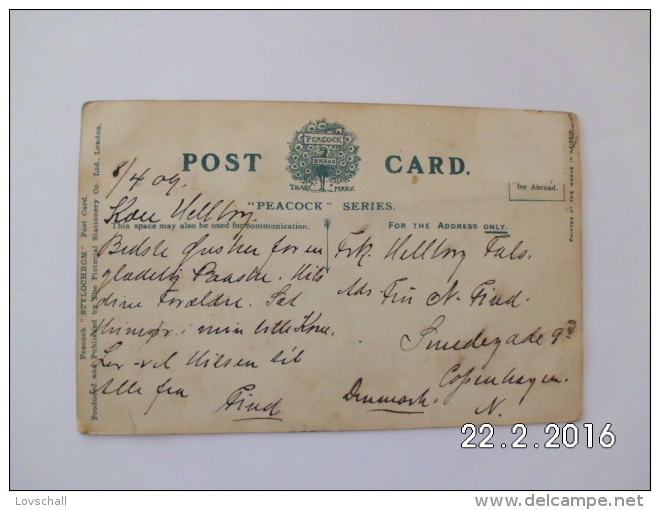 POST CARD.
PEACOCK
BRAND
TRADE MARK
"PEACOCK" SERIES.
for Abroad.
This space may also be used for communication.
FOR THE ADDRESS ONLY.
Peacock "STYLOCHROM" Post Card.
Produced and Published by The Pictorial Stationery Co. Ltd., London.
PRINTED AT THE WORKS IN
8/4 09.
Kære Hellbrg.
Bedste Ønsker for en
glædelig Paaske. Hils
dine Forældre.
i min lille Kone.
Lev vel Hilsen til
Alle fra
Find
Frk. Hellbrg Fals.
Adr. Fru N. Find.
Smedegade 9
Copenhagen.
N.
Denmark.
22.2.2016
Lovschall
www.delcampe.net